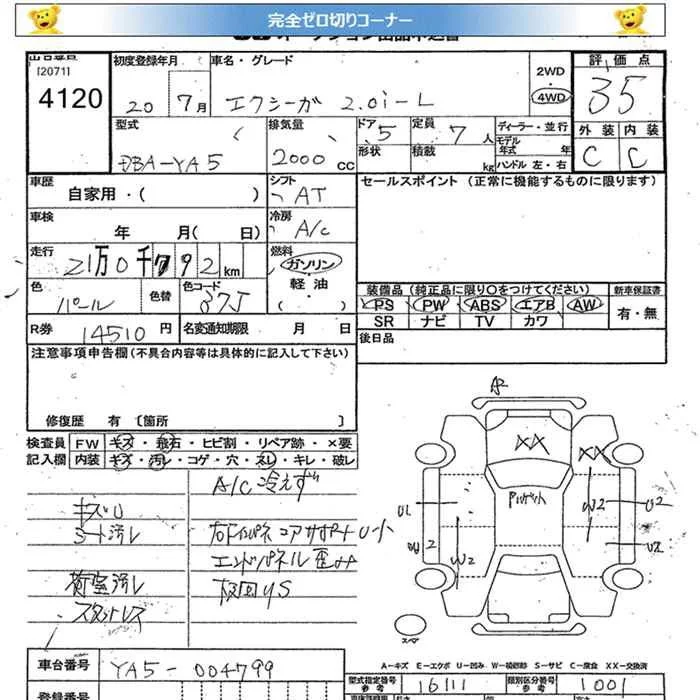 完全ゼロ切りコーナー
[2071]
4120
初度登録年月
20 7月
車名・グレード
エクシーガ 2.0i-L
2WD
4WD
評価点
3.5
外装 内装
C C
型式
DBA-YA5
排気量
2000 CC
ドア 5
形状
定員 7 人
積載 kg
ディーラー・並行
モデル年式 年
ハンドル 左・右
車歴
自家用・( )
シフト
AT
セールスポイント (正常に機能するものに限ります)
車検
年 月( 日)
冷房
A/C
走行
21万0千792km
燃料
ガソリン
軽油
( )
色
パール
色替
色コード
37J
装備品 (純正品に限り○をつけてください)
新車保証書
PS PW ABS エアB AW
SR ナビ TV カワ
有・無
R券 14510円
名変通知期限 月 日
後日品
注意事項申告欄(不具合内容等は具体的に記入して下さい)
修復歴 有 〔箇所 〕
検査員 FW キズ・飛石・ヒビ割・リペア跡・×要
記入欄 内装 キズ・汚レ・コゲ・穴・スレ・キレ・破レ
A/C冷えず
キズU
シート汚レ
右Fインパネ コアサポートU小
エンドパネル歪み
荷室汚レ
板回YS
スタットレス
A2
XX
XX
U1
W2
W2
U2
U2
スペア
A-キズ E-エクボ U-凹み W-補修跡 S-サビ C-腐食 XX-交換済
車台番号
YA5-004799
型式指定番号
参考
16111
類別区分番号
参考
1001
登録番号